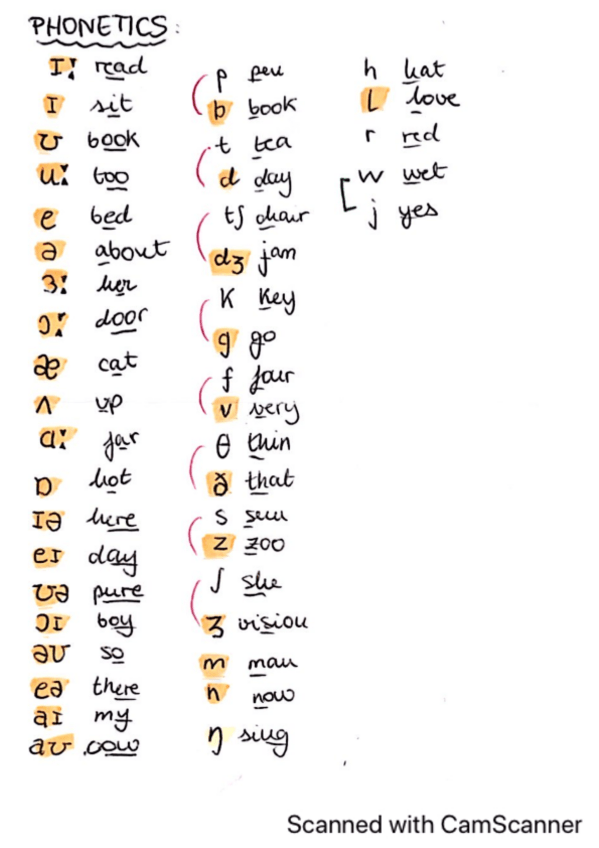 PHONETICS:
ɪː read
ɪ sit
ʊ book
uː too
e bed
ə about
ɜː her
ɔː door
æ cat
ʌ up
ɑː far
ɒ hot
ɪə here
eɪ day
ʊə pure
ɔɪ boy
əʊ so
eə there
aɪ my
aʊ cow
p pen
b book
t tea
d day
tʃ chair
dʒ jam
k key
g go
f four
v very
θ thin
ð that
s seem
z zoo
ʃ she
ʒ vision
m man
n now
ŋ sing
h hat
l love
r red
w wet
j yes
Scanned with CamScanner